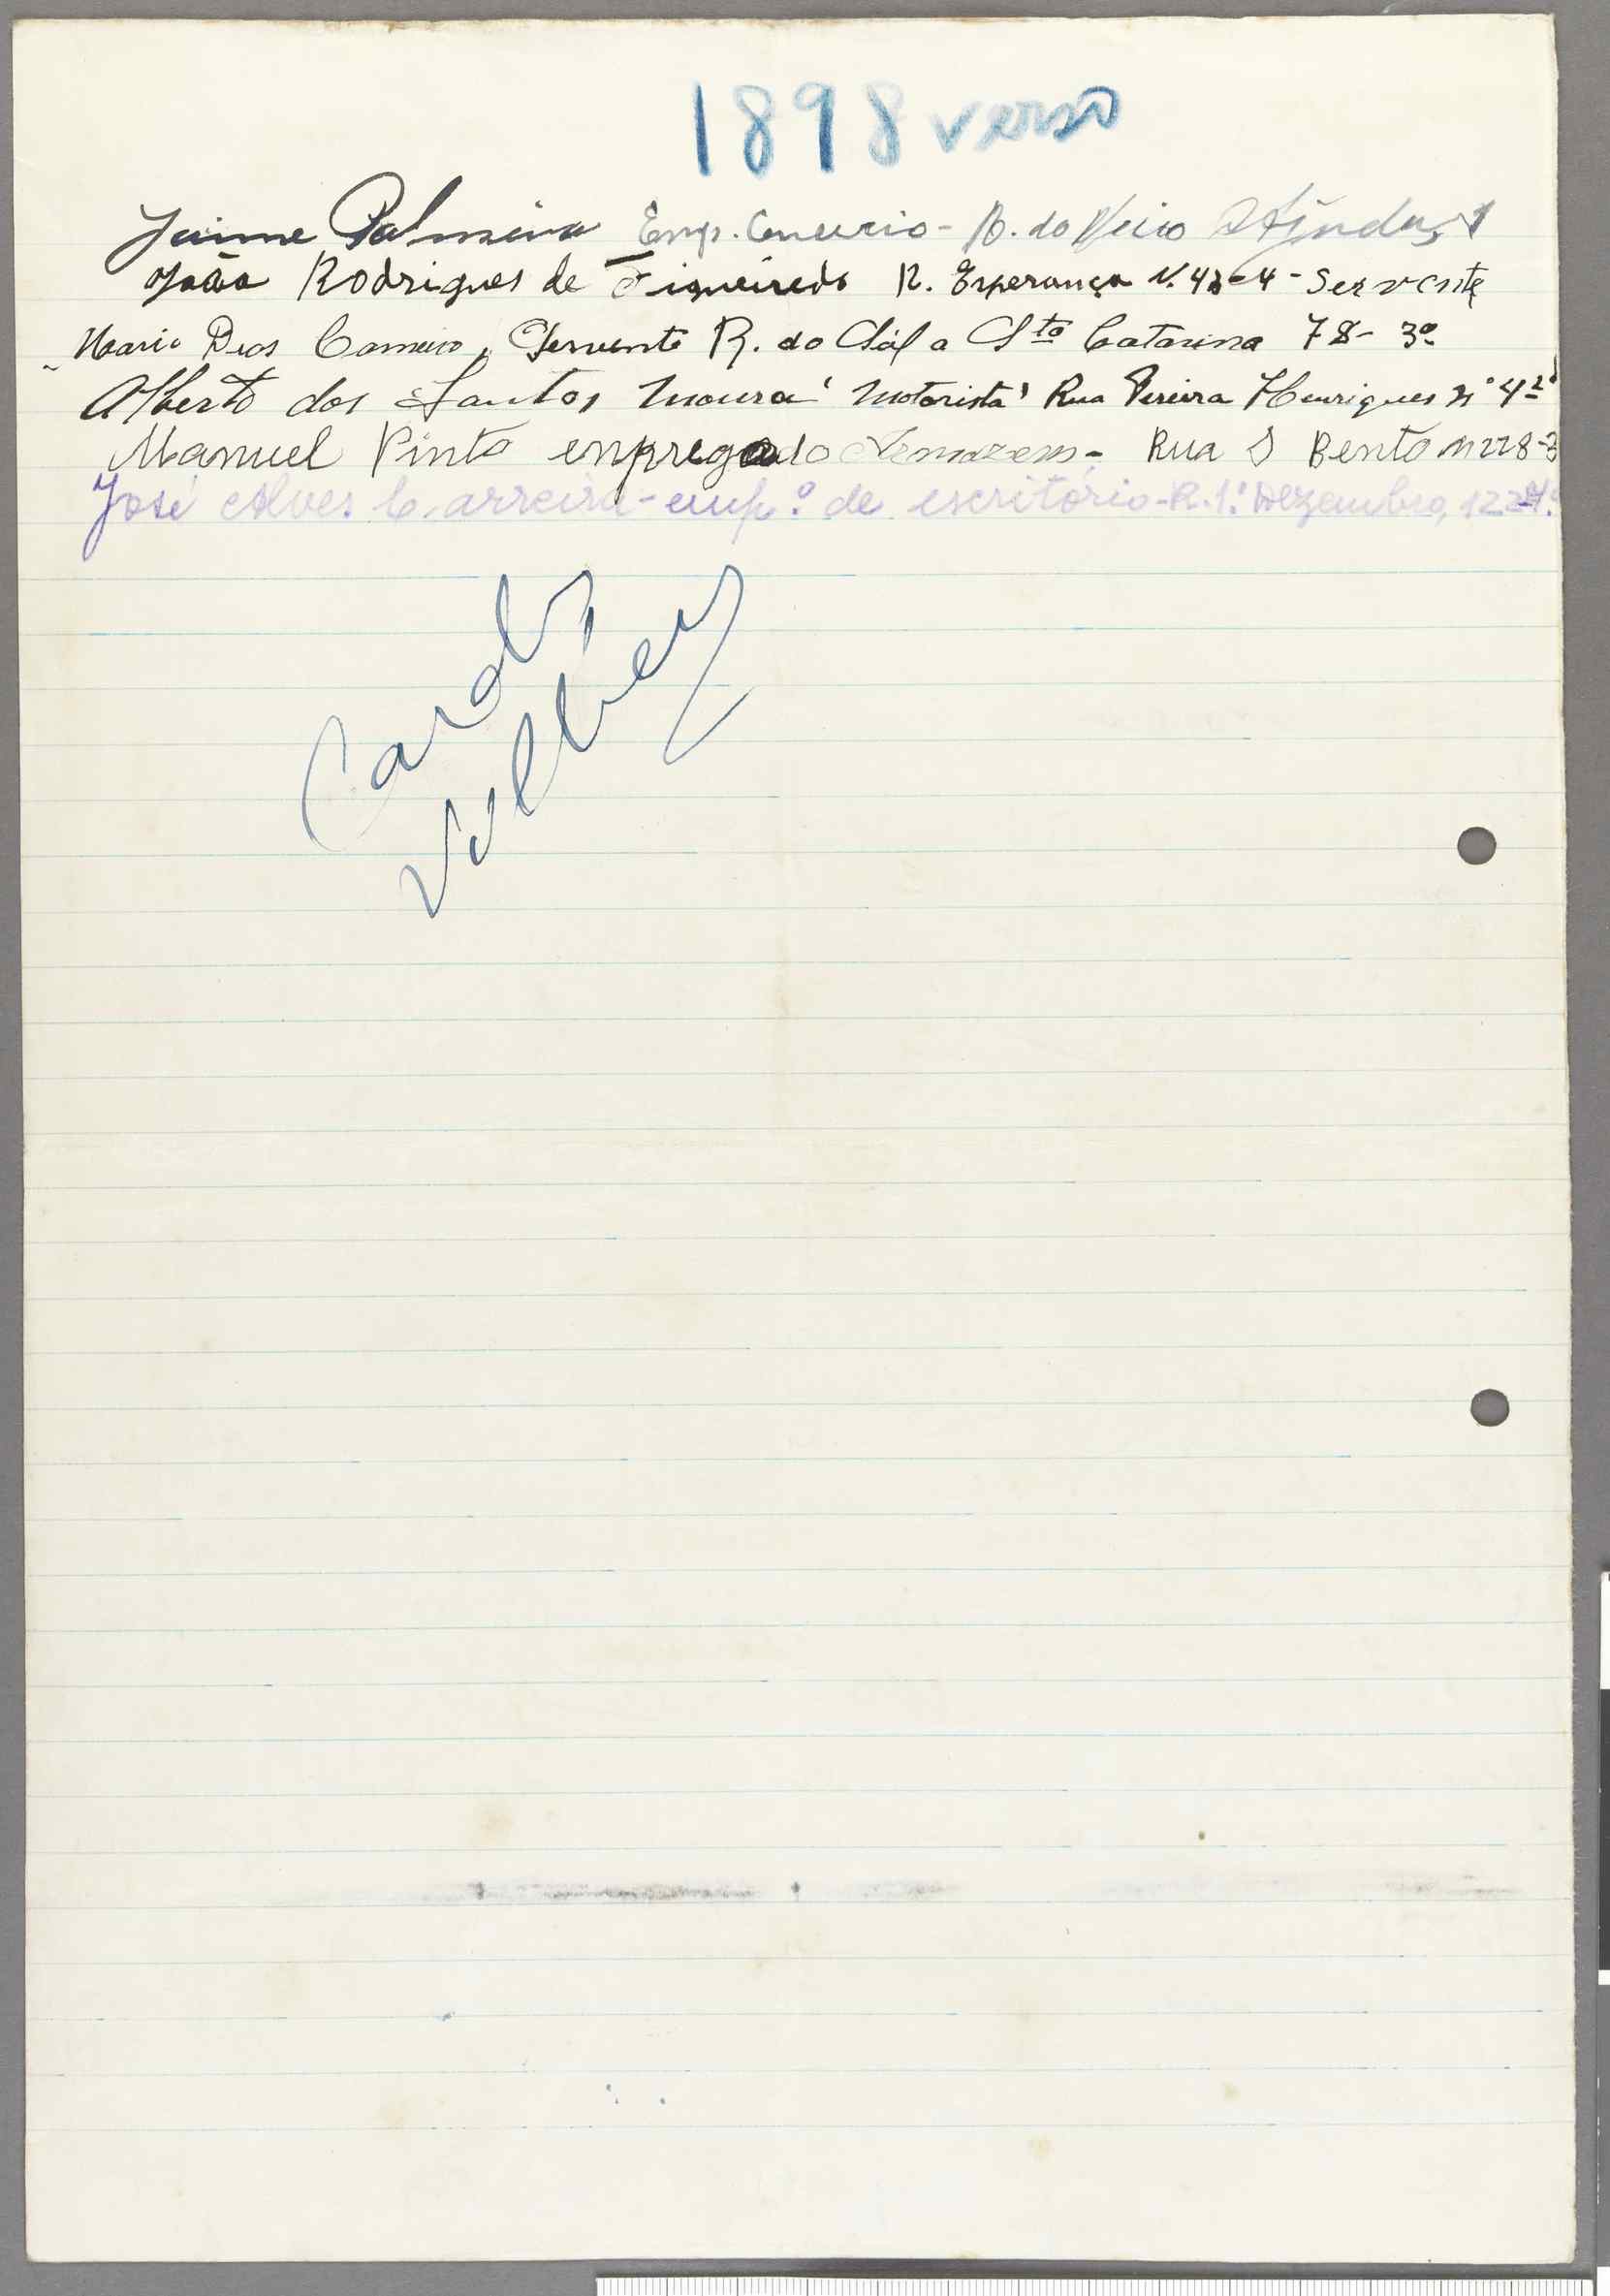 1898 verso
Jaime Palmeira Emp. Comercio - R. do Meio Ajuda, 1
João Rodrigues de Figueiredo R. Esperança N. 42-4 - Servente
Mario Dias Carneiro, Servente R. do Sól a Sta Catarina 78 - 3º
Alberto dos Santos Moura "Motorista" Rua Pereira Henriques nº 4 2º
Manuel Pinto enpregado Armazem - Rua S Bento n 228-3
José Alves Carreira - emp.º de escritório - R. 1.º Dezembro, 122-4.º
Cards